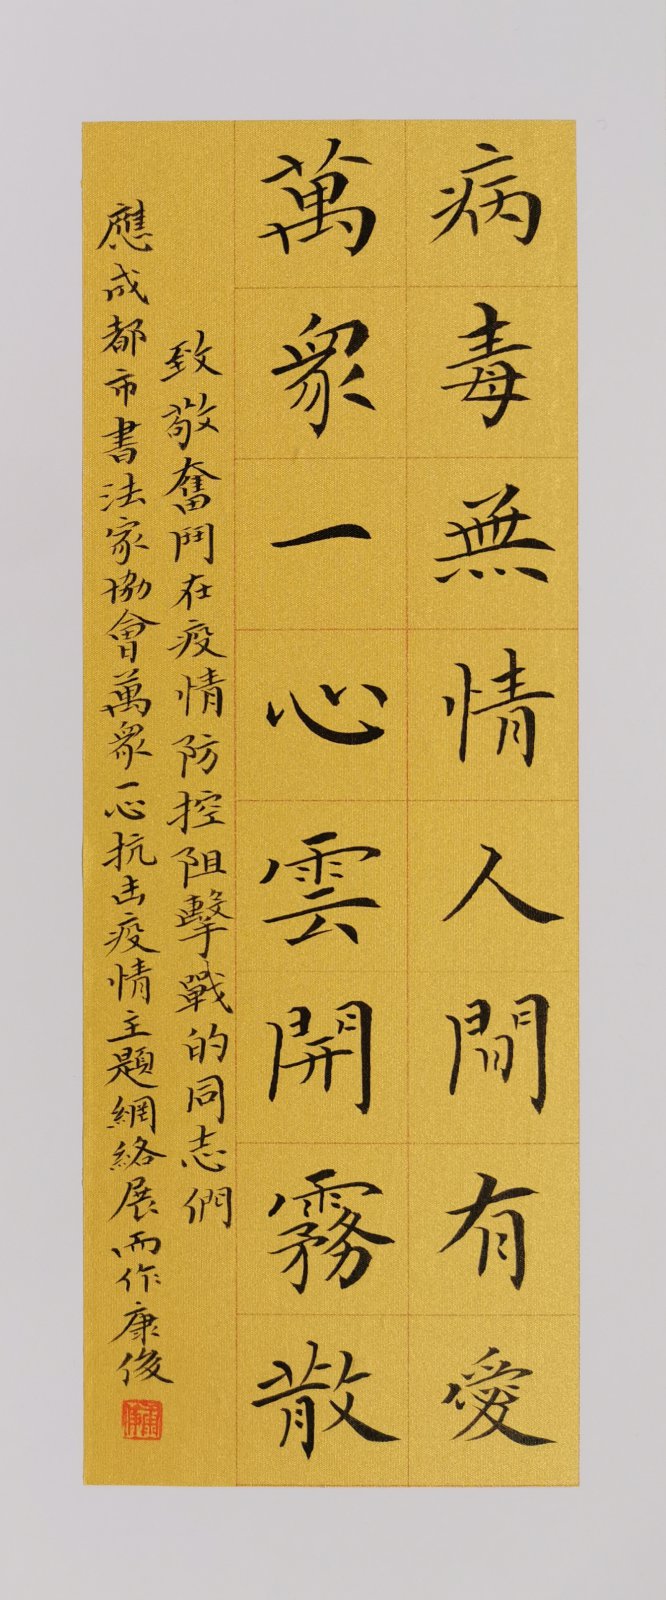 病毒無情人間有愛
萬眾一心雲開霧散
致敬奮鬥在疫情防控阻擊戰的同志們
應成都市書法家協會萬眾一心抗击疫情主題網絡展而作康俊